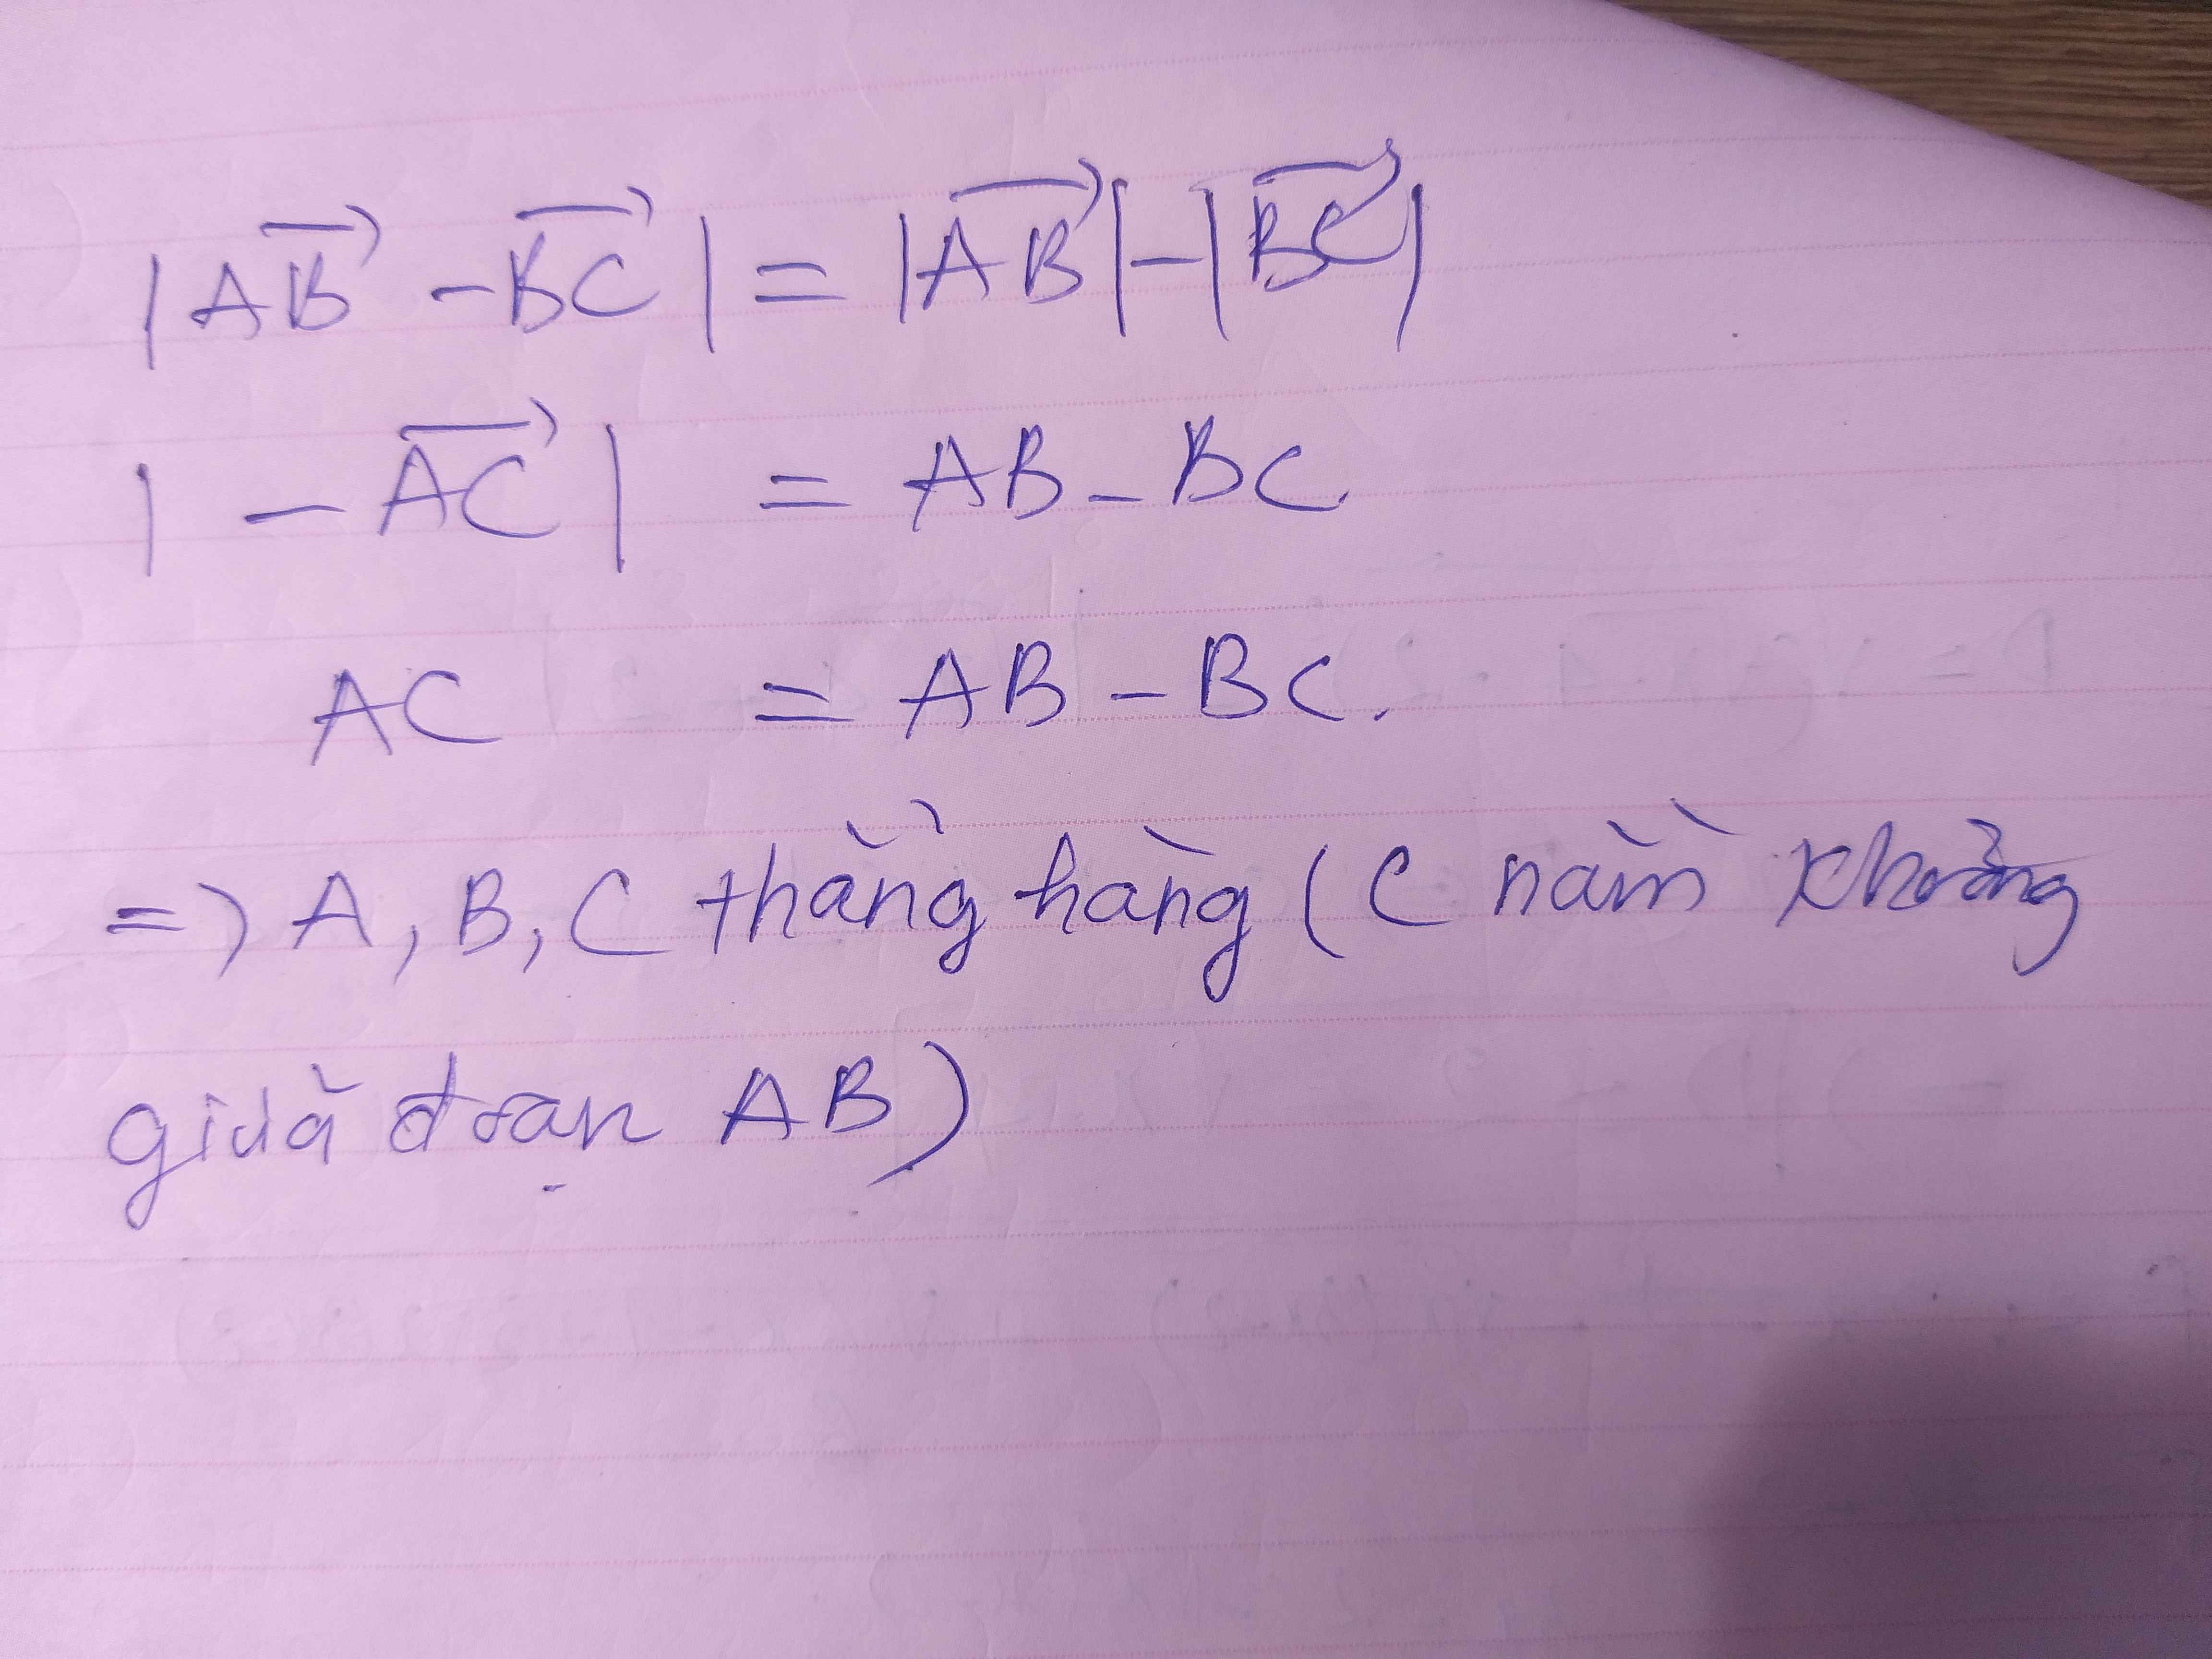 |AB⃗ - BC⃗| = |AB⃗| - |BC⃗|
|- AC⃗| = AB - BC.
AC = AB - BC.
=> A, B, C thẳng hàng (C nằm khoảng
giữa đoạn AB)